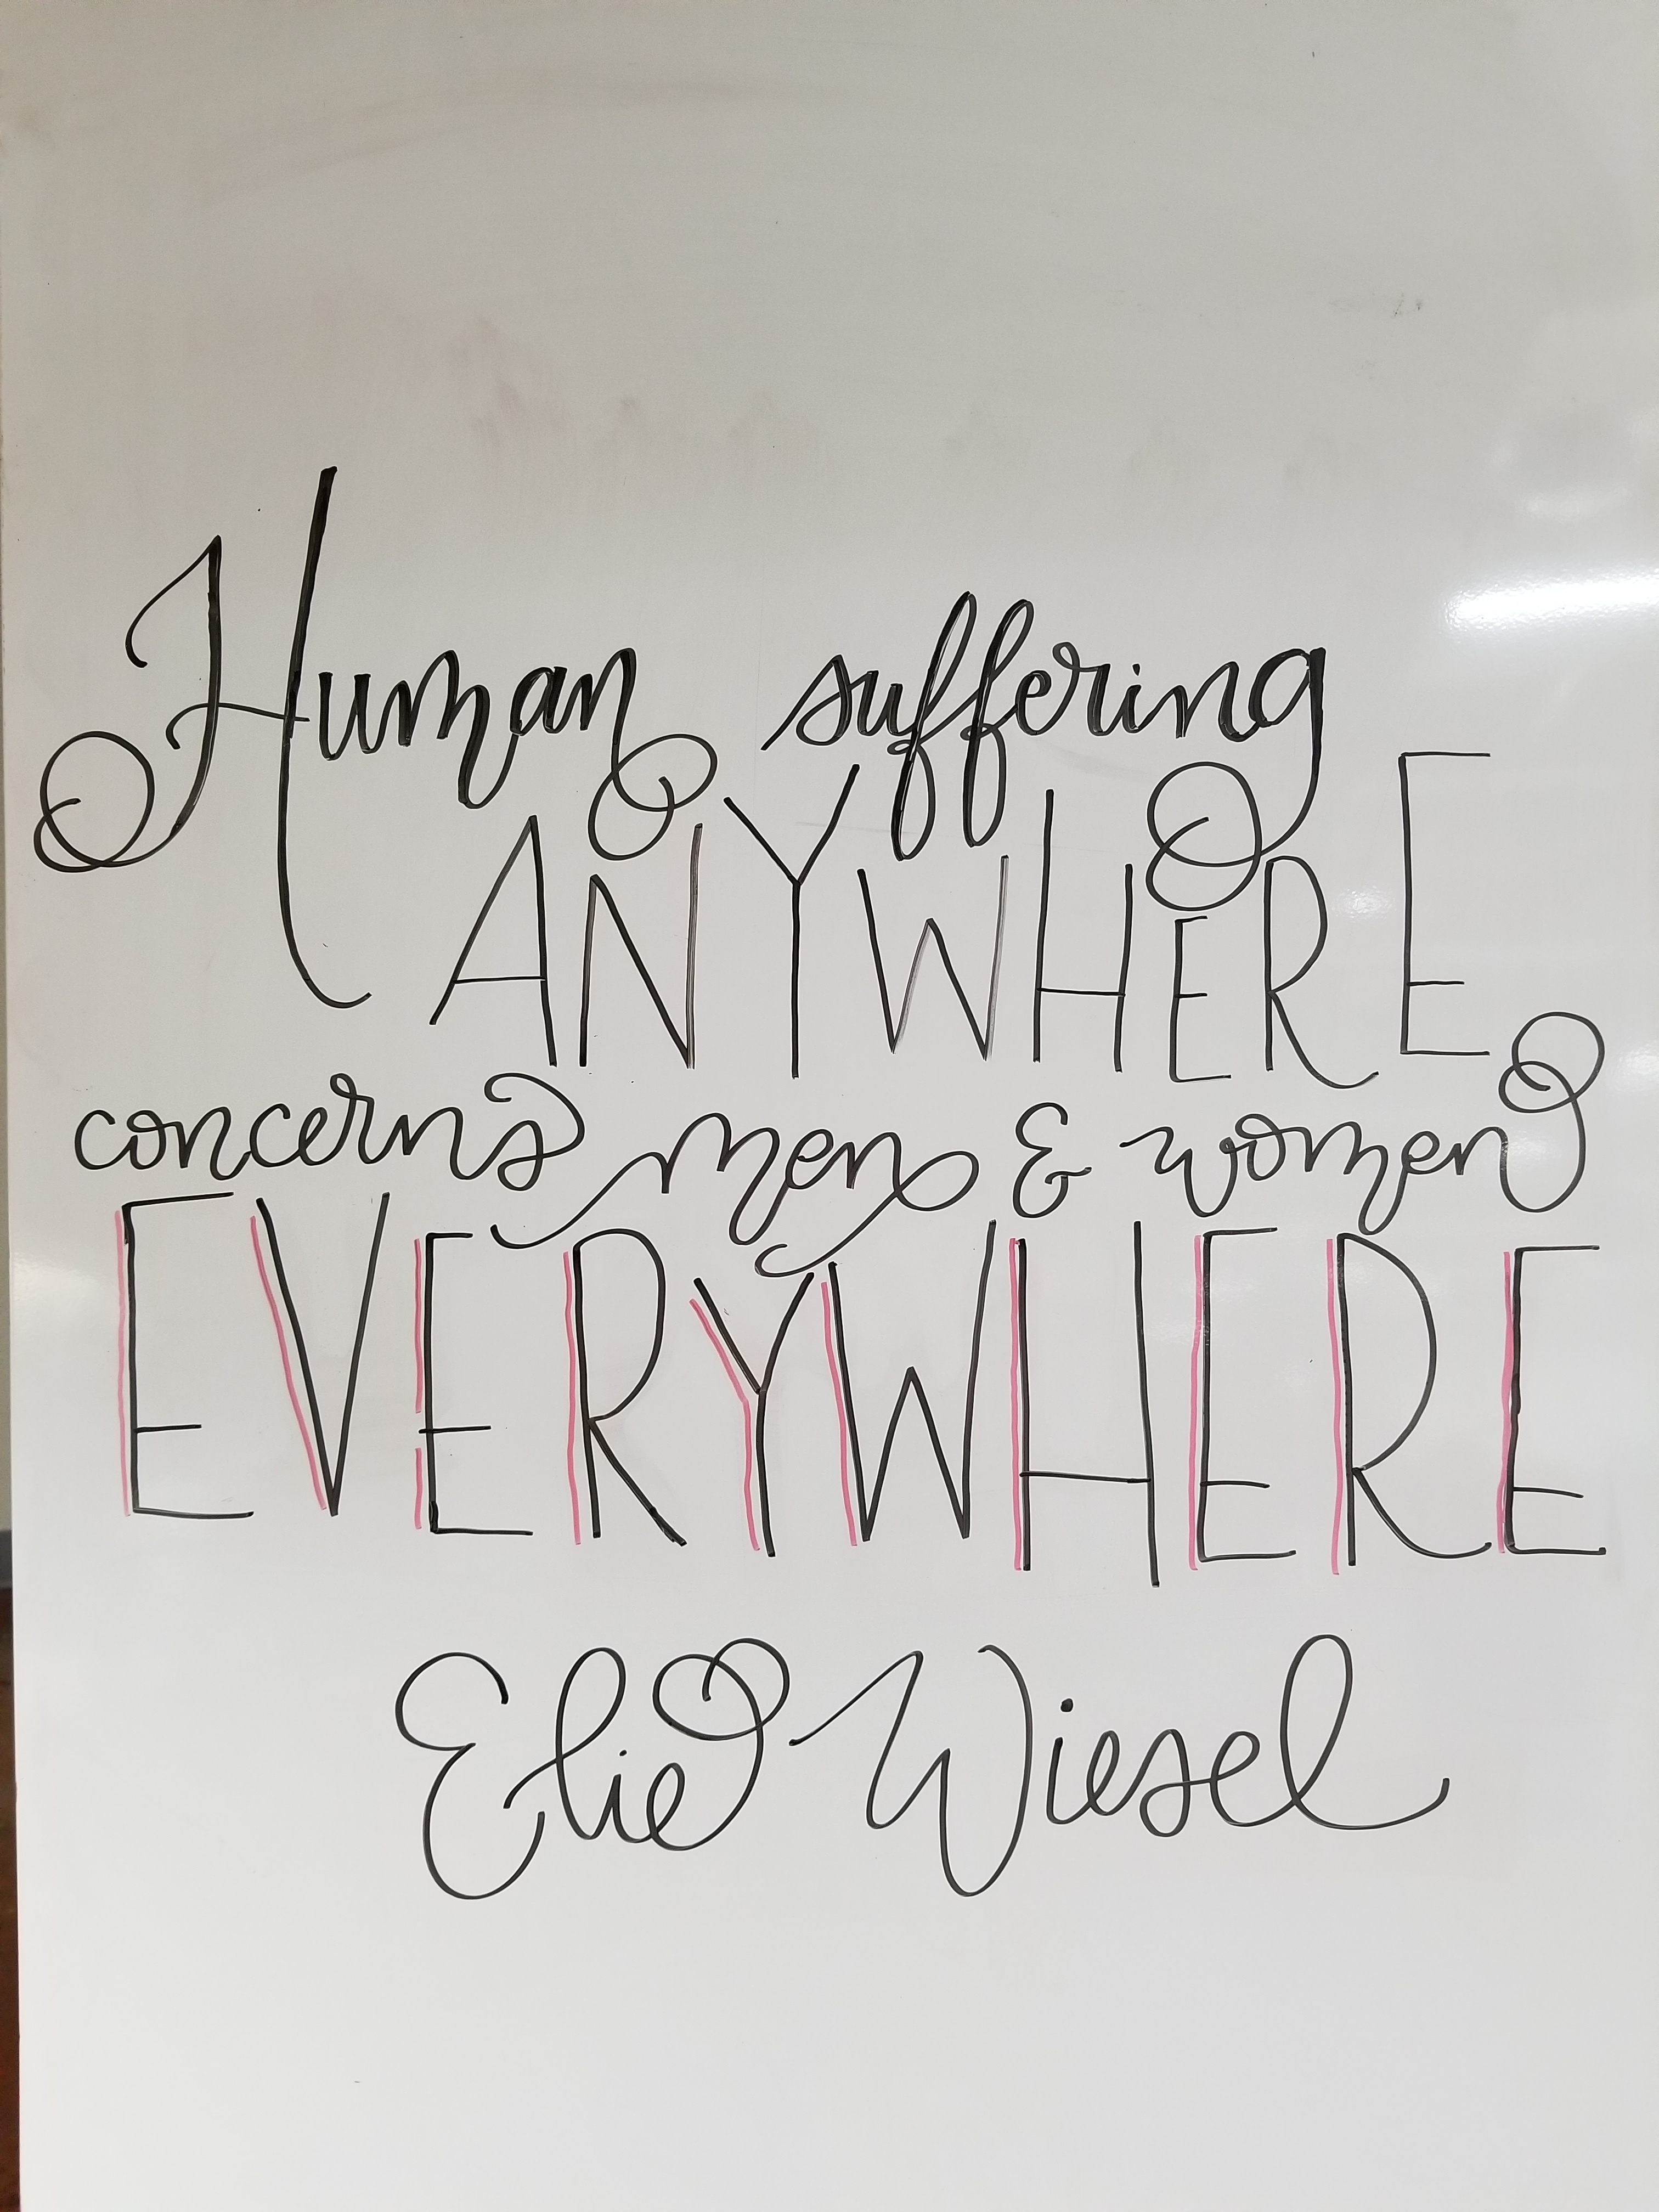 Human suffering
ANYWHERE
concerns men & women
EVERYWHERE
Elie Wiesel